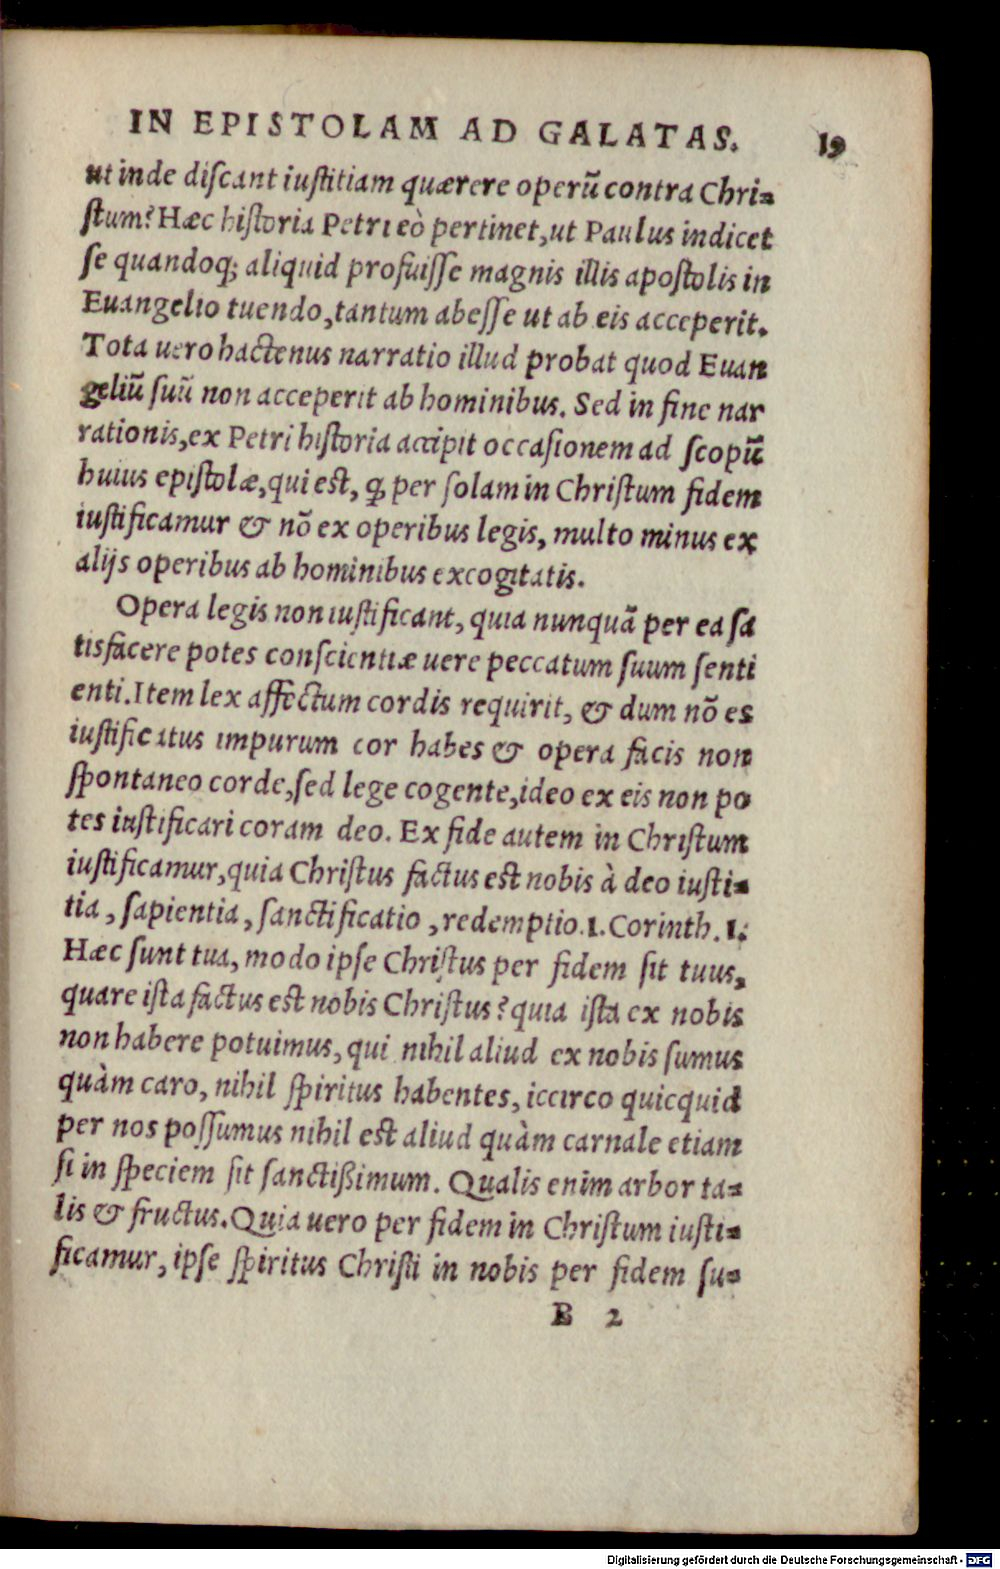 IN EPISTOLAM AD GALATAS. 19
ut inde discant iustitiam quærere operũ contra Chri-
stum? Hæc historia Petri eò pertinet, ut Paulus indicet
se quandoq; aliquid profuisse magnis illis apostolis in
Euangelio tuendo, tantum abesse ut ab eis acceperit.
Tota uero hactenus narratio illud probat quod Euan
geliũ suũ non acceperit ab hominibus. Sed in fine nar
rationis, ex Petri historia accipit occasionem ad scopũ
huius epistolæ, qui est, ꝙ per solam in Christum fidem
iustificamur & nõ ex operibus legis, multo minus ex
alijs operibus ab hominibus excogitatis.
Opera legis non iustificant, quia nunquã per ea sa
tisfacere potes conscientiæ uere peccatum suum senti
enti. Item lex affectum cordis requirit, & dum nõ es
iustificatus impurum cor habes & opera facis non
spontaneo corde, sed lege cogente, ideo ex eis non po
tes iustificari coram deo. Ex fide autem in Christum
iustificamur, quia Christus factus est nobis à deo iusti-
tia, sapientia, sanctificatio, redemptio. 1. Corinth. 1.
Hæc sunt tua, modo ipse Christus per fidem sit tuus,
quare ista factus est nobis Christus? quia ista ex nobis
non habere potuimus, qui nihil aliud ex nobis sumus
quàm caro, nihil spiritus habentes, iccirco quicquid
per nos possumus nihil est aliud quàm carnale etiam
si in speciem sit sanctißimum. Qualis enim arbor ta-
lis & fructus. Quia uero per fidem in Christum iusti-
ficamur, ipse spiritus Christi in nobis per fidem su-
B 2
Digitalisierung gefördert durch die Deutsche Forschungsgemeinschaft - DFG